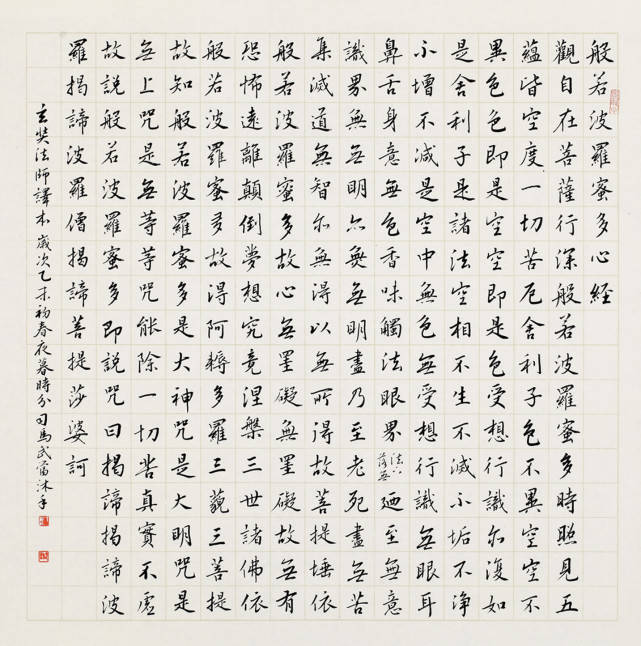 般若波羅蜜多心経
觀自在菩薩行深般若波羅蜜多時照見五
蘊皆空度一切苦厄舍利子色不異空空不
異色色即是空空即是色受想行識亦復如
是舍利子是諸法空相不生不滅不垢不淨
不增不減是空中無色無受想行識無眼耳
鼻舌身意無色香味觸法眼界廼至無意
識界無無明亦無無明盡乃至老死盡無苦
集滅道無智亦無得以無所得故菩提埵依
般若波羅蜜多故心無罣礙無罣礙故無有
恐怖遠離顛倒夢想究竟涅槃三世諸佛依
般若波羅蜜多故得阿耨多羅三藐三菩提
故知般若波羅蜜多是大神咒是大明咒是
無上咒是無等等咒能除一切苦真實不虛
故說般若波羅蜜多即說咒曰揭諦揭諦波
羅揭諦波羅僧揭諦菩提莎婆訶
玄奘法師譯本 歲次乙未初春夜暮時分司馬武當沐手